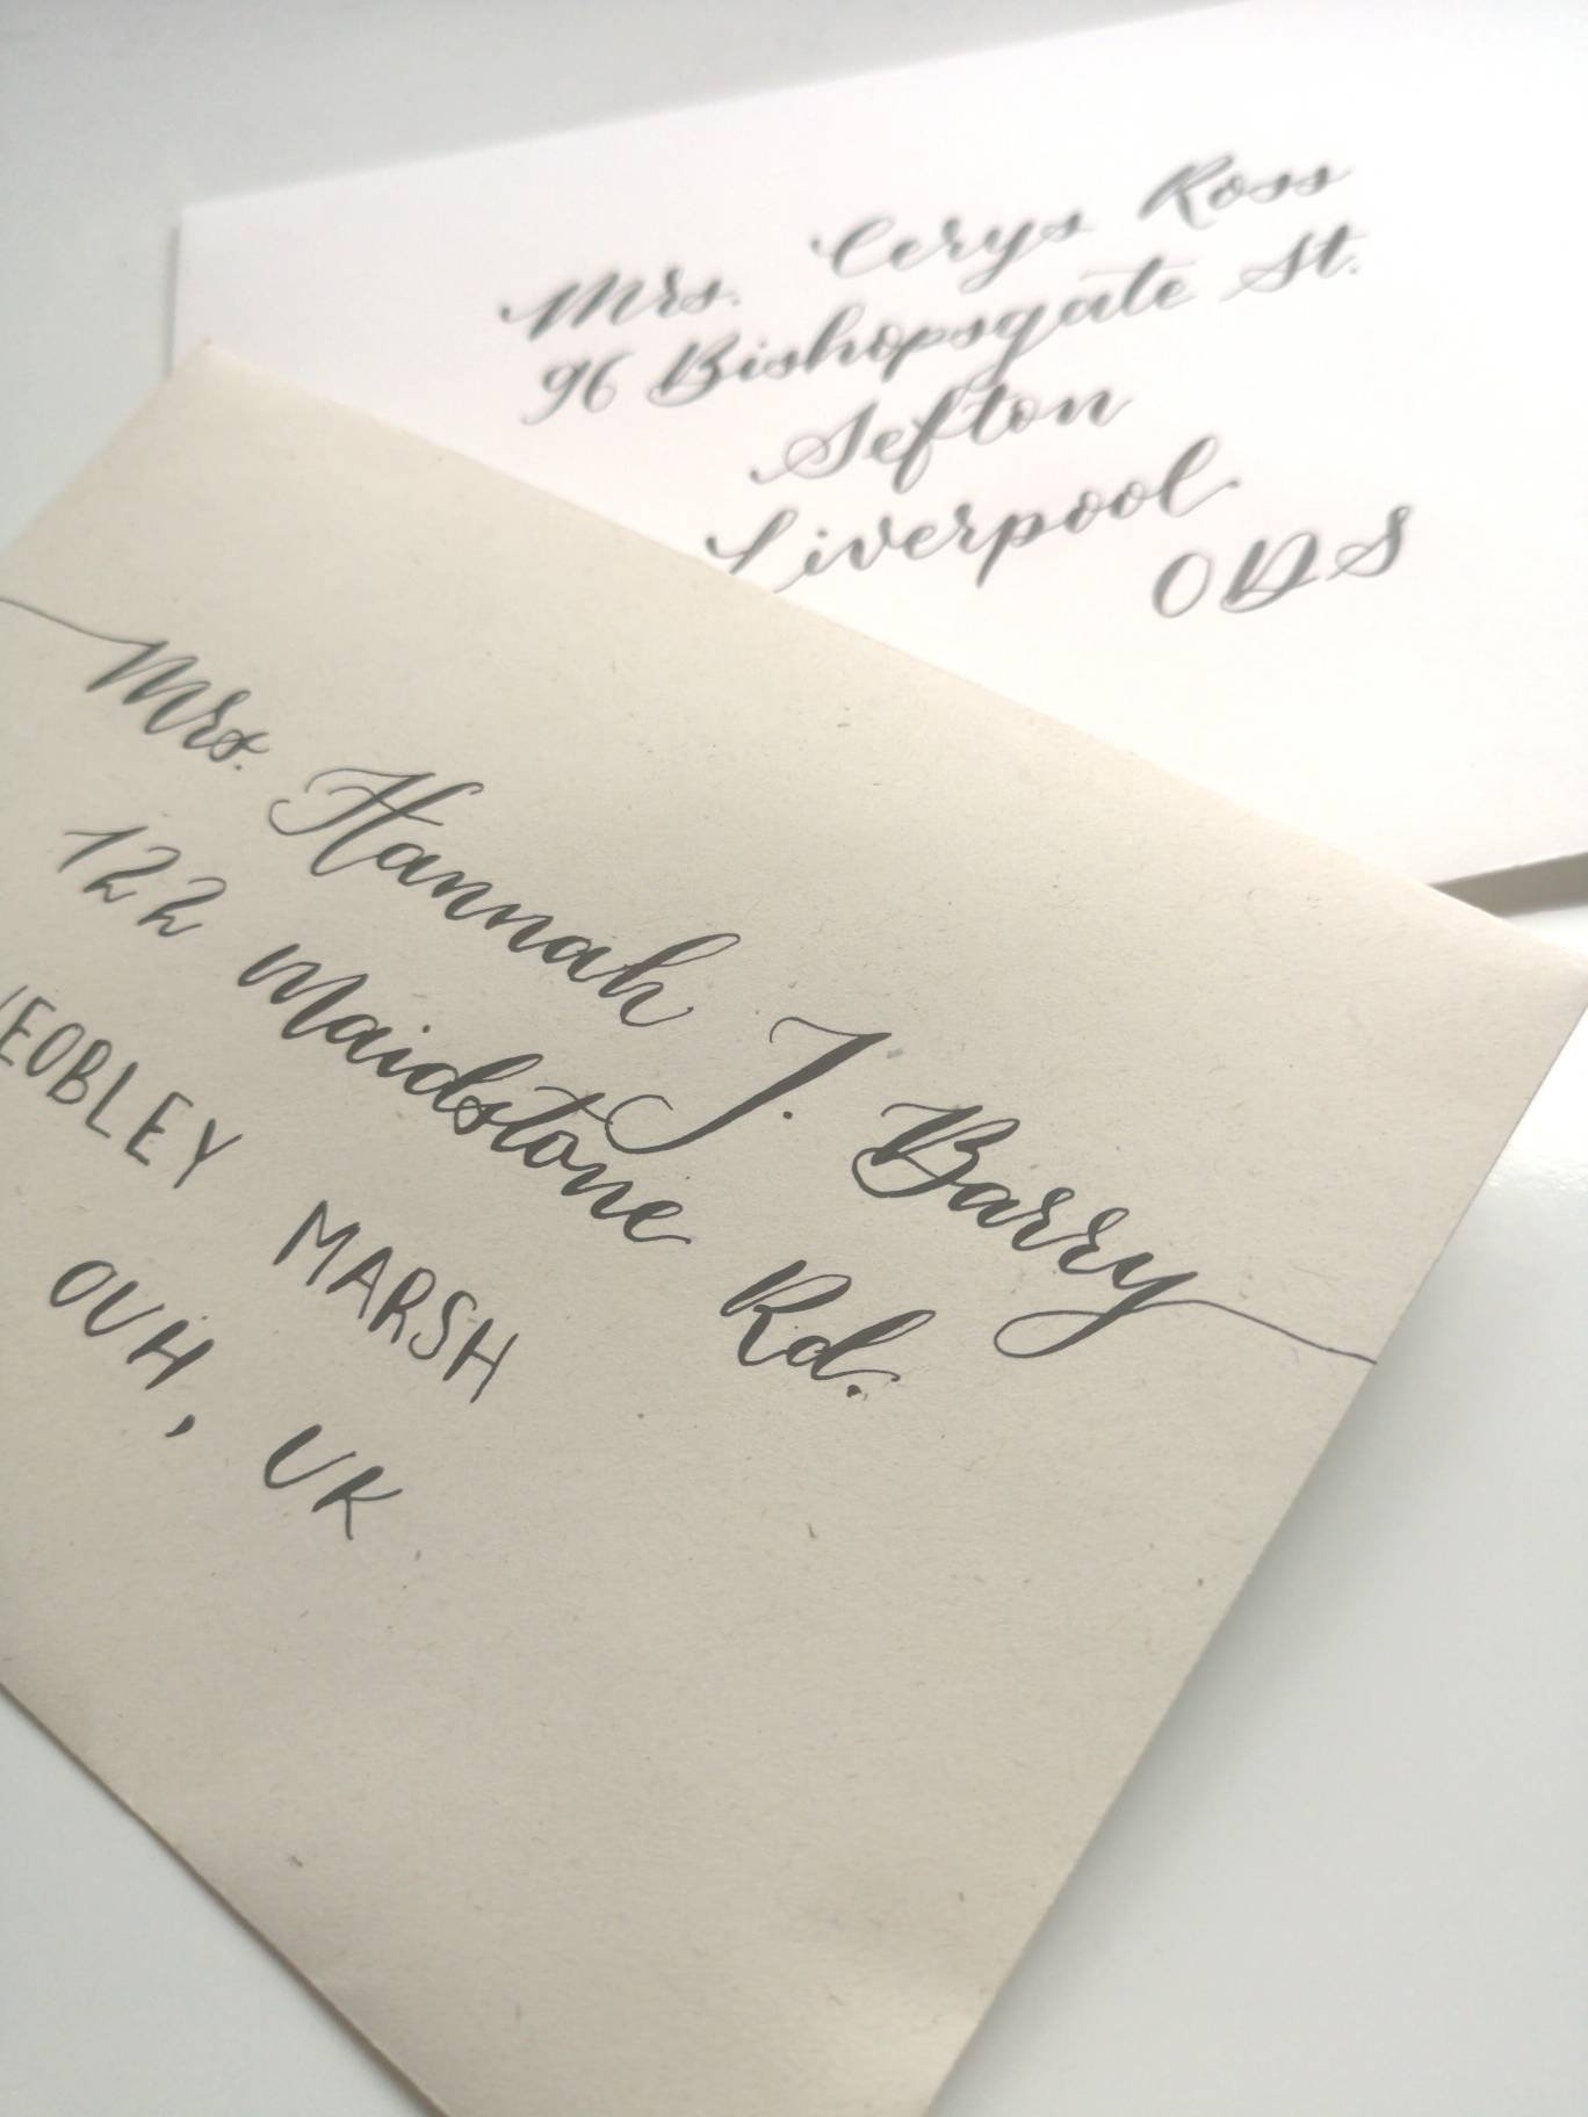 Mrs. Cerys Ross
96 Bishopsgate St.
Sefton
Liverpool
ODS
Mrs. Hannah J. Barry
122 Maidstone Rd.
EOBLEY MARSH
OUH, UK